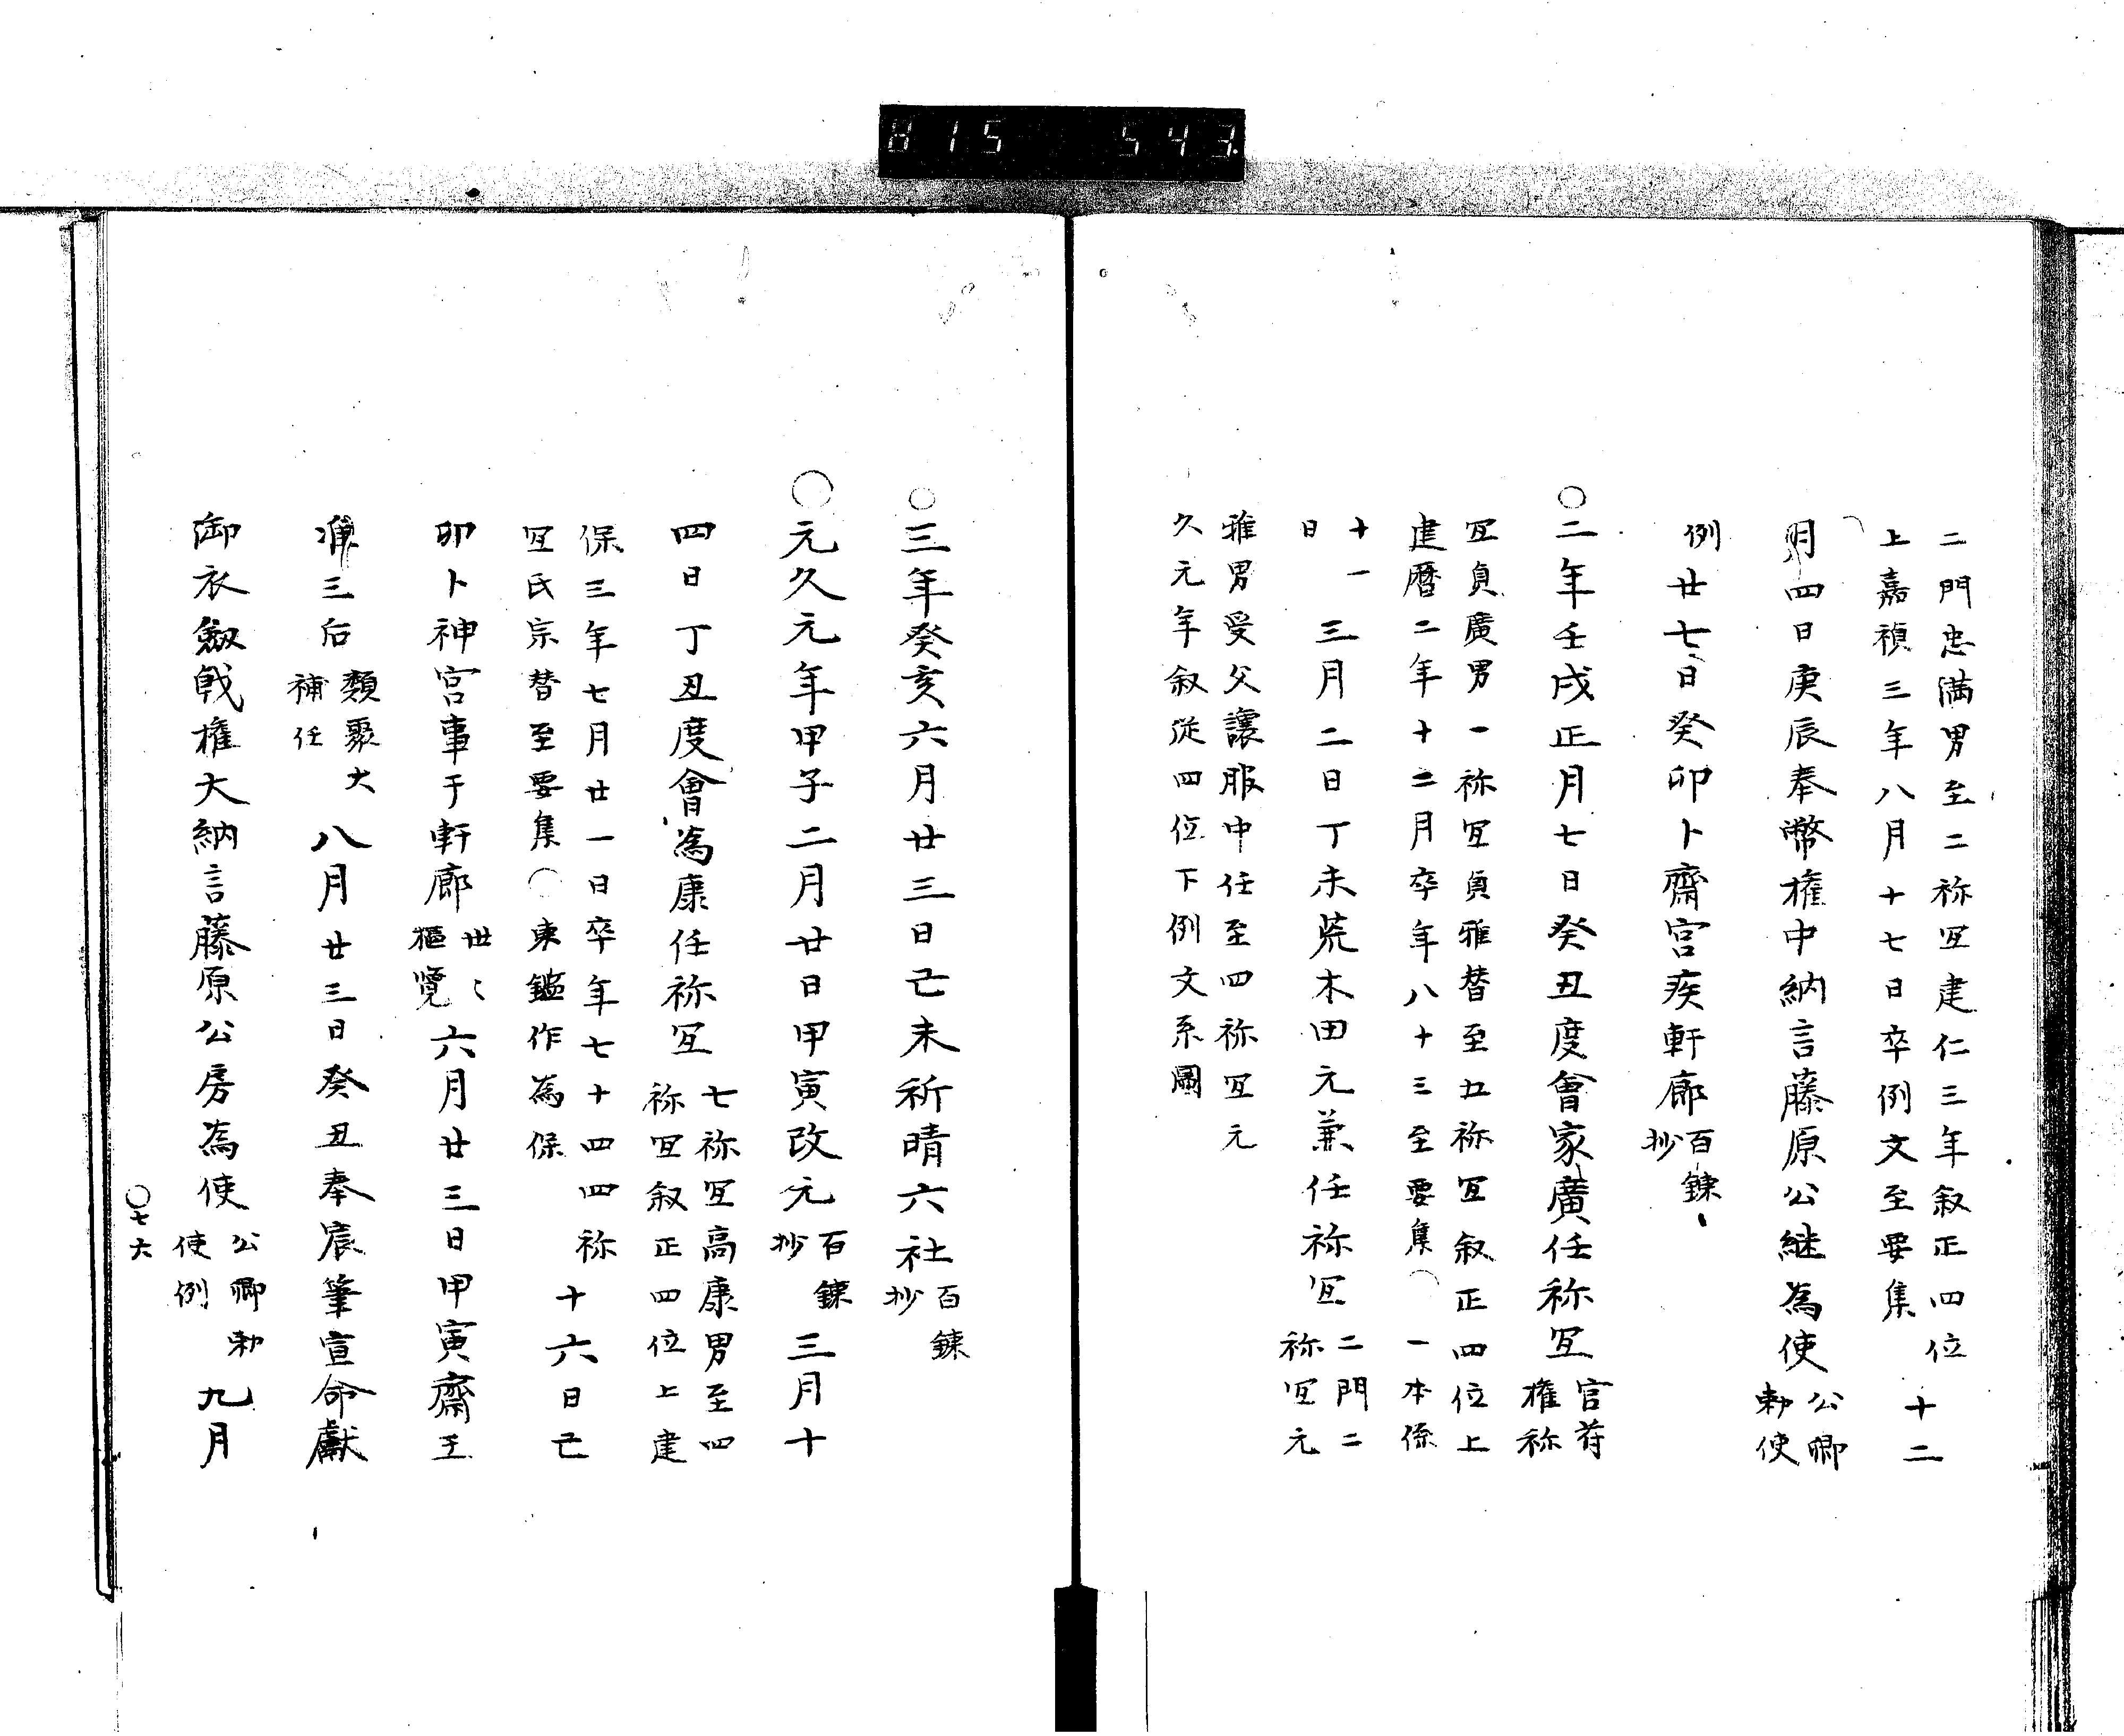 815 543
二門忠満男至二祢冝建仁三年叙正四位
上嘉禎三年八月十七日卒例文至要集
十二
月四日庚辰奉幣権中納言藤原公継為使
公卿
勅使
例廿七日癸卯卜齋宮疾軒廊
百錬
抄
○二年壬戌正月七日癸丑度會家廣任祢冝
官符
権祢
冝貞廣男一祢冝貞雅替至五祢冝叙正四位上
建暦二年十二月卒年八十三至要集○一本係
十一
日
三月二日丁未荒木田元兼任祢冝
二門二
祢冝元
雅男受父譲服中任至四祢冝元
久元年叙従四位下例文系圖
○三年癸亥六月廿三日己未祈晴六社
百錬
抄
○元久元年甲子二月廿日甲寅改元
百錬
抄
三月十
四日丁丑度會為康任祢冝
七祢冝高康男至四
祢冝叙正四位上建
保三年七月廿一日卒年七十四四祢
冝氏宗替至要集○東鑑作為保
十六日己
卯卜神宮事于軒廊
世〻
樞覽
六月廿三日甲寅齋王
准三后
類聚大
補任
八月廿三日癸丑奉宸筆宣命獻
御衣劔戟権大納言藤原公房為使
公卿勅
使例
九月
○七六